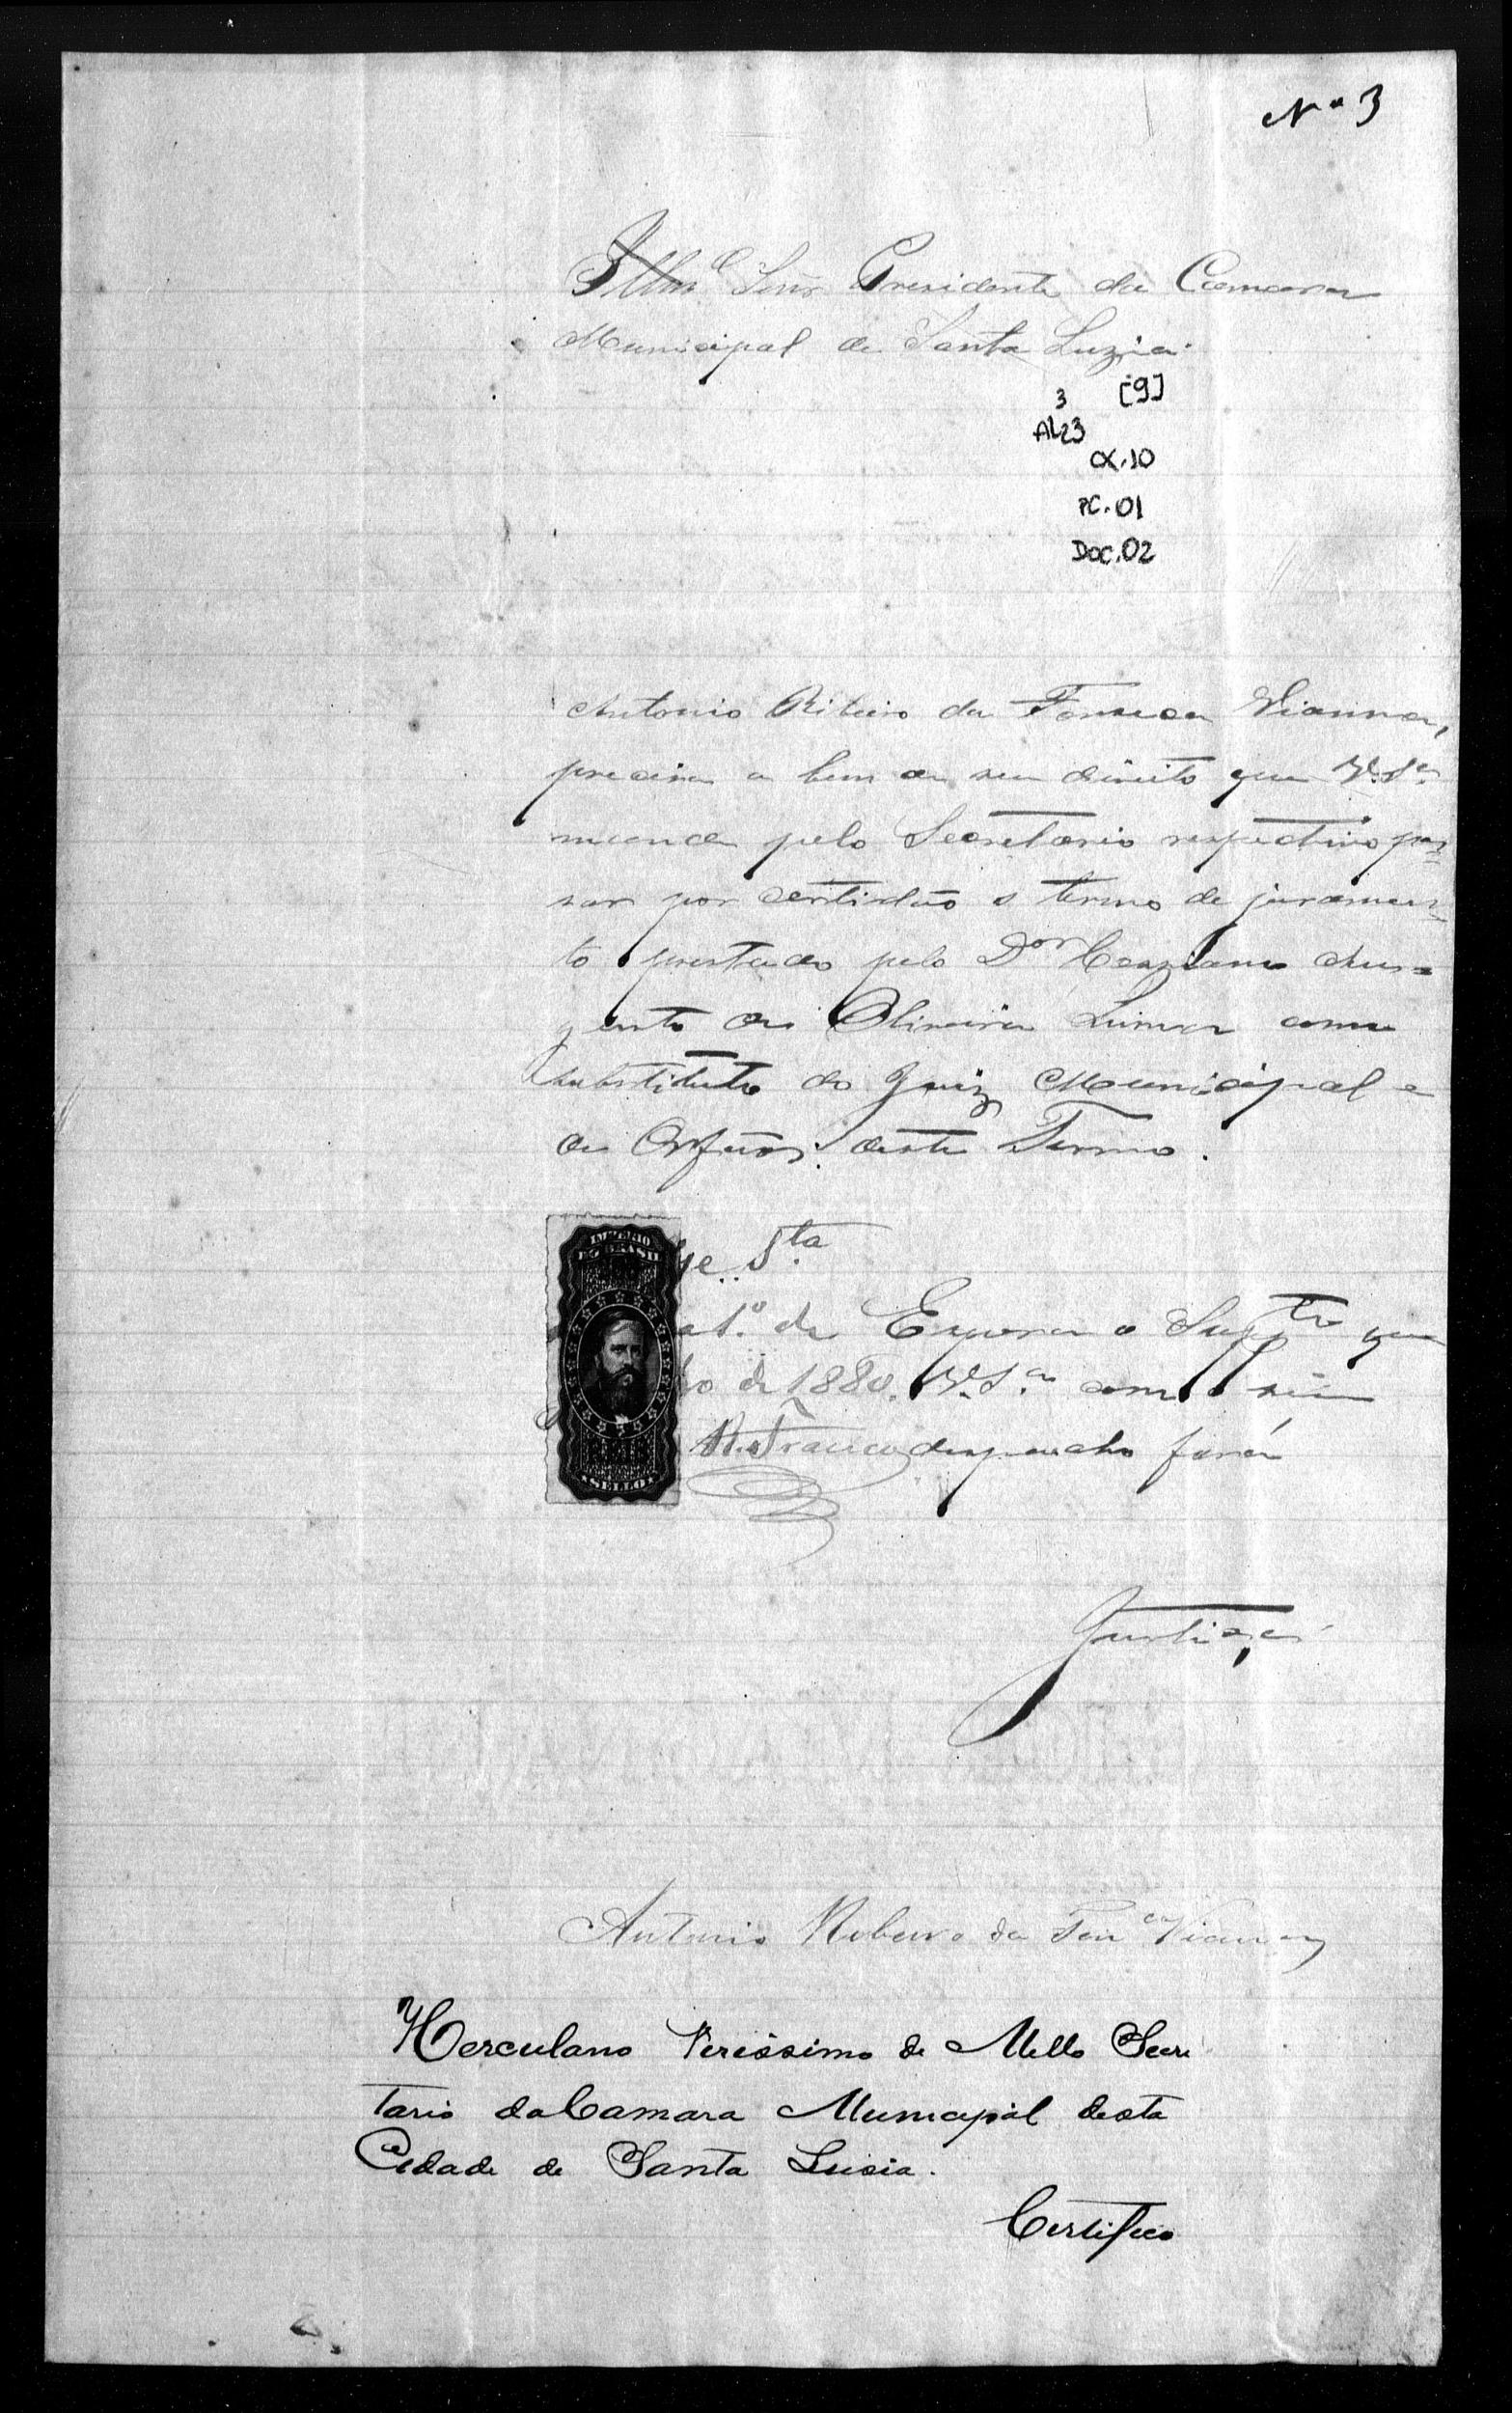 Nº 3
Illmº Senr Presidente da Camara
Municipal de Santa Luzia.
3 [9]
AL23
CX.10
PC.01
DOC.02
Antonio Ribeiro da Fonseca Vianna,
precisa a bem de seu direito que V.Sª
mande pelo Secretario respectivo pas=
sar por certidão o termo de juramen=
to prestado pelo Dor Cassiano Au=
gusto de Oliveira Lima como
substituto do Juiz Municipal e
de Orfãos deste Termo.
IMPERIO
DO BRASIL
SELLO
se. Sta
de Espera o Suppte que
de 1880. V.Sª com o seu
R. Franco despacho fará
Justiça
Antonio Ribeiro da Fonca Vianna
Herculano Verissimo de Mello Secre
tario da Camara Municipal desta
Cidade de Santa Lusia.
Certifico